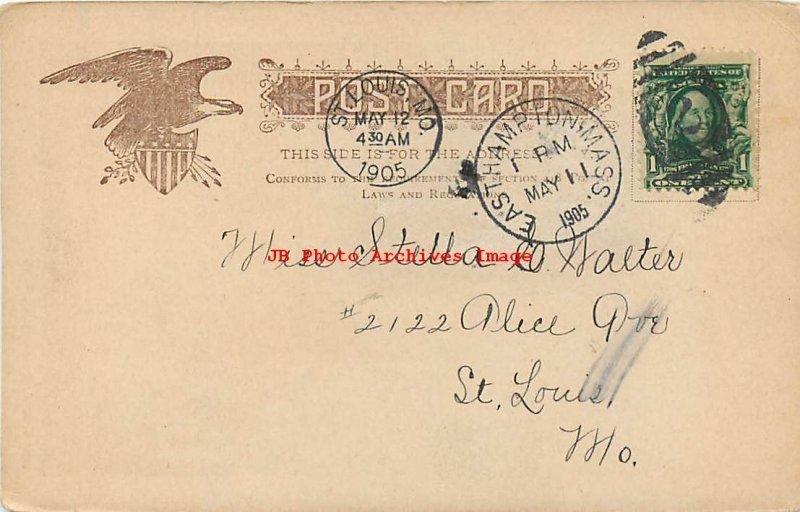 POST CARD
THIS SIDE IS FOR THE ADDRESS
CONFORMS TO THE REQUIREMENTS OF SECTION AND POSTAL
LAWS AND REGULATIONS
ST. LOUIS, MO.
MAY 12
4 30 AM
1905
EASTHAMPTON, MASS.
1 PM
MAY 11
1905
UNITED STATES OF
1 1
ONE CENT
JB Photo Archives Image
Miss Stella O. Walter
#2122 Alice Ave
St. Louis,
Mo.